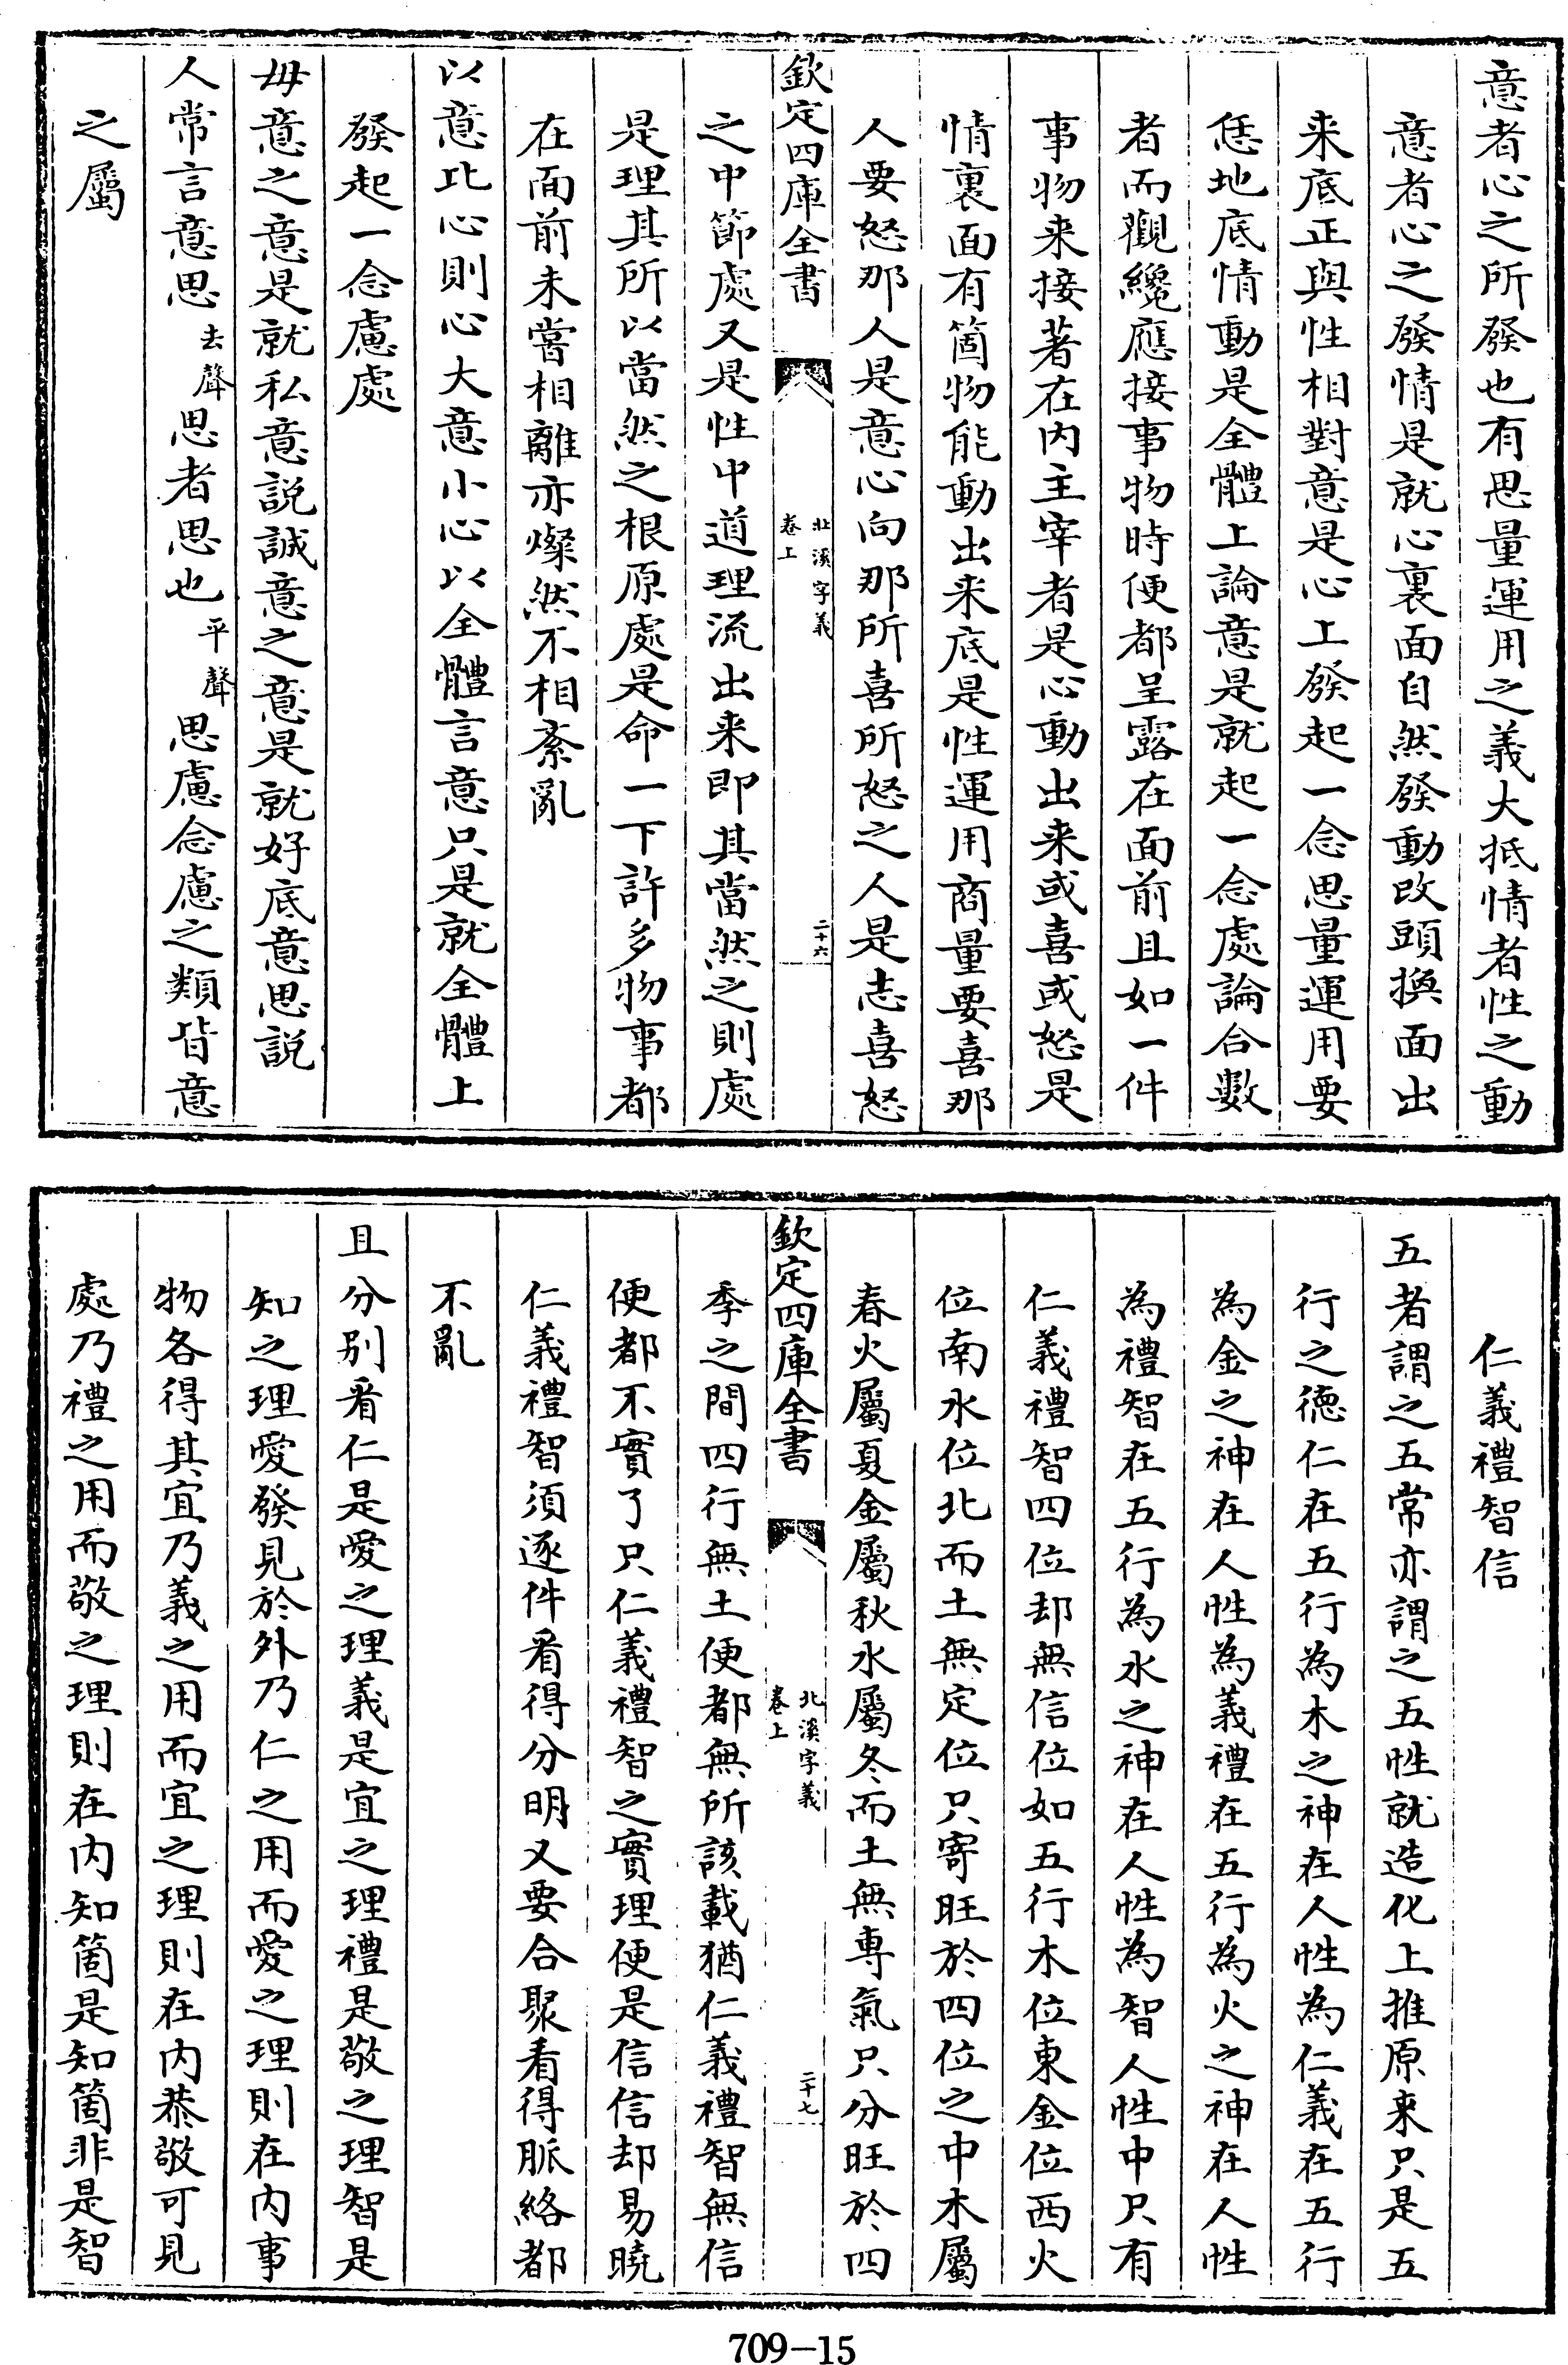 意者心之所發也有思量運用之義大抵情者性之動
意者心之發情是就心裏面自然發動改頭換面出
来底正與性相對意是心上發起一念思量運用要
恁地底情動是全體上論意是就起一念處論合數
者而觀纔應接事物時便都呈露在面前且如一件
事物来接著在内主宰者是心動出来或喜或怒是
情裏面有箇物能動出来底是性運用商量要喜那
人要怒那人是意心向那所喜所怒之人是志喜怒
欽定四庫全書
北溪字義
卷上
二十六
之中節處又是性中道理流出来即其當然之則處
是理其所以當然之根原處是命一下許多物事都
在面前未嘗相離亦燦然不相紊亂
以意比心則心大意小心以全體言意只是就全體上
發起一念慮處
毋意之意是就私意説誠意之意是就好底意思説
人常言意思去聲思者思也平聲思慮念慮之類皆意
之屬
仁義禮智信
五者謂之五常亦謂之五性就造化上推原來只是五
行之徳仁在五行為木之神在人性為仁義在五行
為金之神在人性為義禮在五行為火之神在人性
為禮智在五行為水之神在人性為智人性中只有
仁義禮智四位却無信位如五行木位東金位西火
位南水位北而土無定位只寄旺於四位之中木屬
春火屬夏金屬秋水屬冬而土無專氣只分旺於四
欽定四庫全書
北溪字義
卷上
二十七
季之間四行無土便都無所該載猶仁義禮智無信
便都不實了只仁義禮智之實理便是信信却易曉
仁義禮智須逐件看得分明又要合聚看得脈絡都
不亂
且分别看仁是愛之理義是宜之理禮是敬之理智是
知之理愛發見於外乃仁之用而愛之理則在内事
物各得其宜乃義之用而宜之理則在内恭敬可見
處乃禮之用而敬之理則在内知箇是知箇非是智
709-15